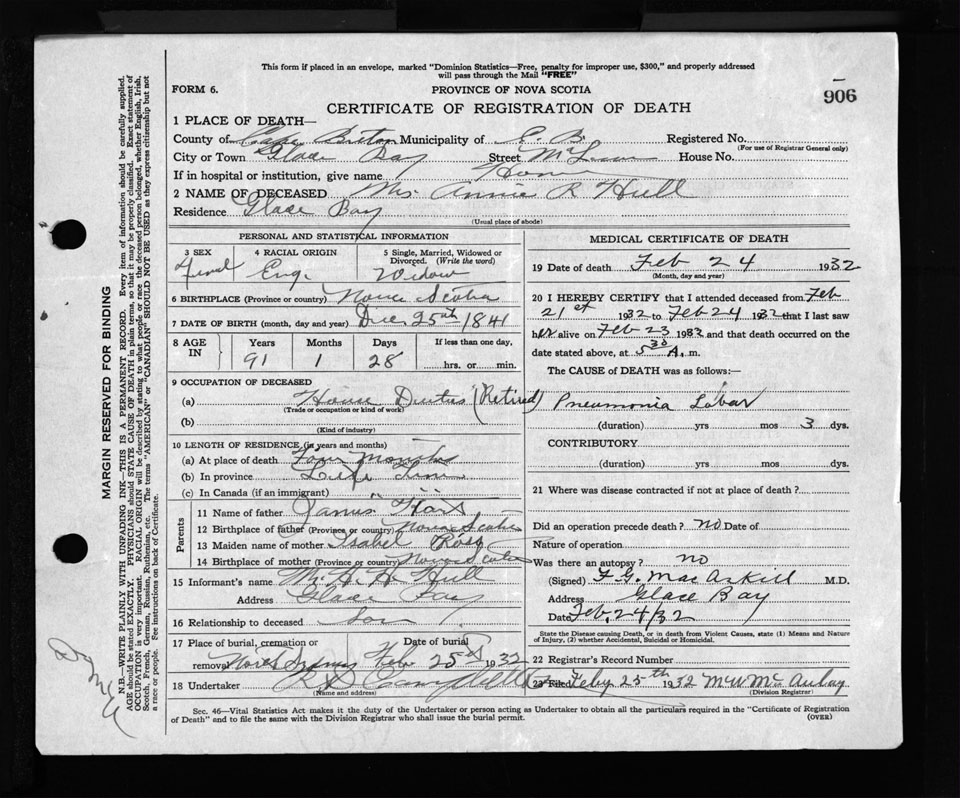 This form if placed in an envelope, marked "Dominion Statistics—Free, penalty for improper use, $300," and properly addressed
will pass through the Mail "FREE"
FORM 6.
PROVINCE OF NOVA SCOTIA
906
CERTIFICATE OF REGISTRATION OF DEATH
1 PLACE OF DEATH—
County of Cape Breton Municipality of C. B. Registered No.
(For use of Registrar General only)
City or Town Glace Bay Street House No.
If in hospital or institution, give name Home
2 NAME OF DECEASED Mrs. Annie R Hull
Residence Glace Bay
(Usual place of abode)
PERSONAL AND STATISTICAL INFORMATION
3 SEX
4 RACIAL ORIGIN
5 Single, Married, Widowed or
Divorced. (Write the word)
Femal Eng. Widow
6 BIRTHPLACE (Province or country) Nova Scotia
7 DATE OF BIRTH (month, day and year) Dec 25th 1841
8 AGE
IN
Years Months Days If less than one day,
91 1 28 hrs. or min.
9 OCCUPATION OF DECEASED
(a) House Duties (Retired)
(Trade or occupation or kind of work)
(b)
(Kind of industry)
10 LENGTH OF RESIDENCE (in years and months)
(a) At place of death Four Months
(b) In province Life Time
(c) In Canada (if an immigrant) " "
Parents
11 Name of father James
12 Birthplace of father (Province or country) Nova Scotia
13 Maiden name of mother Isabel Ross
14 Birthplace of mother (Province or country) Nova Scotia
15 Informant's name Mr. H. H. Hull
Address Glace Bay
16 Relationship to deceased Son
17 Place of burial, cremation or
removal North Sydney
Date of burial
Feb 25th 1932
18 Undertaker Campbell
(Name and address)
MEDICAL CERTIFICATE OF DEATH
19 Date of death Feb 24 1932
(Month, day and year)
20 I HEREBY CERTIFY that I attended deceased from Feb
21st 1932 to Feb 24 1932 that I last saw
her alive on Feb 23 1932 and that death occurred on the
date stated above, at 5 30 A. m.
The CAUSE of DEATH was as follows:—
Pneumonia Lobar
(duration) yrs mos 3 dys.
CONTRIBUTORY
(duration) yrs mos dys.
21 Where was disease contracted if not at place of death?
Did an operation precede death? no Date of
Nature of operation
Was there an autopsy? no
(Signed) F. G. MacAskill M.D.
Address Glace Bay
Date Feb. 24/32
State the Disease causing Death, or in death from Violent Causes, state (1) Means and Nature
of Injury, (2) whether Accidental, Suicidal or Homicidal.
22 Registrar's Record Number
23 Filed Feby 25th 1932 M W McAulay
(Division Registrar)
Sec. 46—Vital Statistics Act makes it the duty of the Undertaker or person acting as Undertaker to obtain all the particulars required in the "Certificate of Registration
of Death" and to file the same with the Division Registrar who shall issue the burial permit.
(OVER)
MARGIN RESERVED FOR BINDING
N.B.—WRITE PLAINLY WITH UNFADING INK—THIS IS A PERMANENT RECORD. Every item of information should be carefully supplied.
AGE should be stated EXACTLY. PHYSICIANS should STATE CAUSE OF DEATH in plain terms, so that it may be properly classified. Exact statement of
OCCUPATION is very important. RACIAL ORIGIN will be described by stating to what people or race the deceased person belonged, whether English, Irish,
Scotch, French, German, Russian, Ruthenian, etc. The terms "AMERICAN" or "CANADIAN" SHOULD NOT BE USED as they express citizenship but not
a race or people. See instructions on back of Certificate.